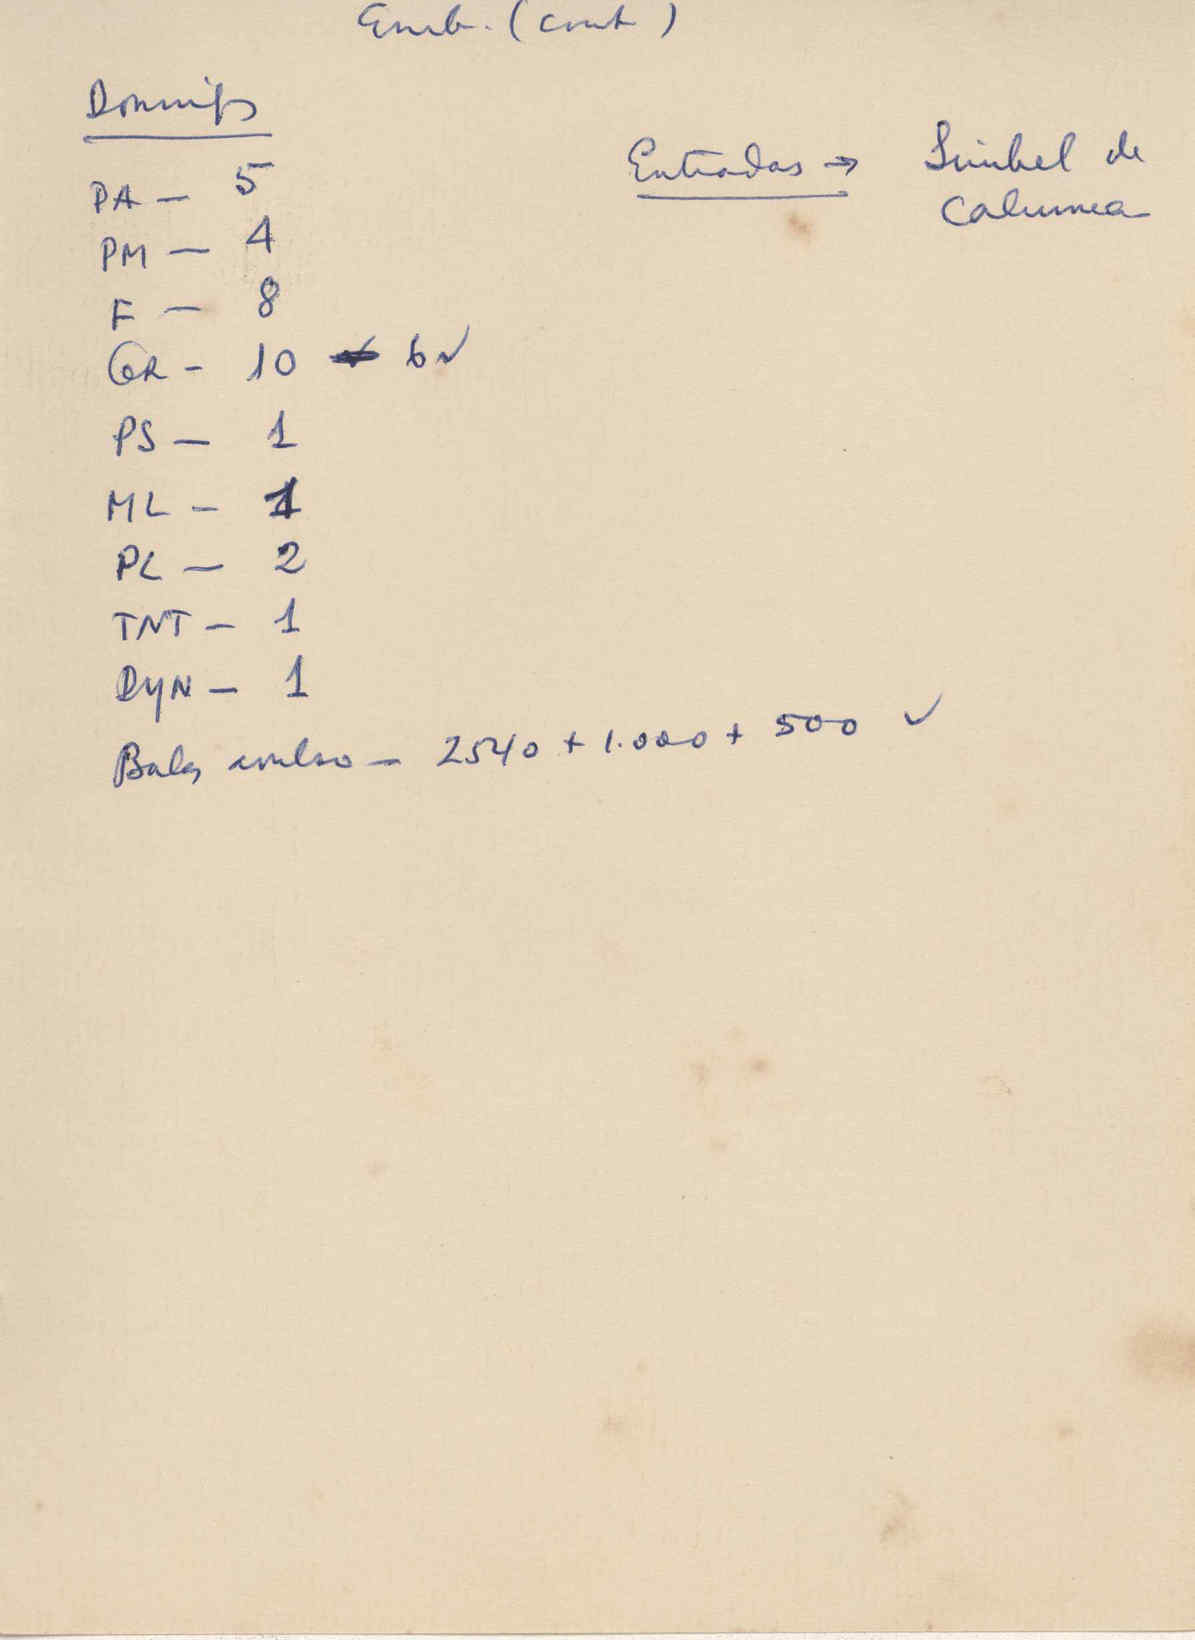 Emb. (cont)
Domingos
PA — 5
PM — 4
F — 8
GR — 10 6 ✓
PS — 1
ML — 1
PL — 2
TNT — 1
DYN — 1
Balas avulso — 2540 + 1.000 + 500 ✓
Entradas → de